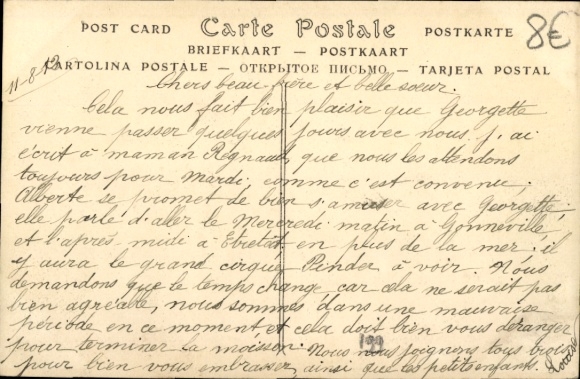 POST CARD Carte Postale POSTKARTE 8€
BRIEFKAART — POSTKAART
CARTOLINA POSTALE — ОТКРЫТОЕ ПИСЬМО — TARJETA POSTAL
11-8-12
Chers beau-frère et belle sœur.
Cela nous fait bien plaisir que Georgette
vienne passer quelques jours avec nous, j'ai
écrit à maman Regnault, que nous les attendons
toujours pour Mardi, comme c'est convenu;
Alberte se promet de bien s'amuser avec Georgette;
elle parle d'aler le Mercredi matin à Gonneville,
et l'après-midi à Etretat, en plus de la mer; il
y aura le grand cirque Pinder à voir. Nous
demandons que le temps change car cela ne serait pas
bien agréable, nous sommes dans une mauvaise
période en ce moment, et cela doit bien vous déranger
pour terminer la moisson. Nous nous joignons tous trois
pour bien vous embrasser, ainsi que les petits enfants.
199